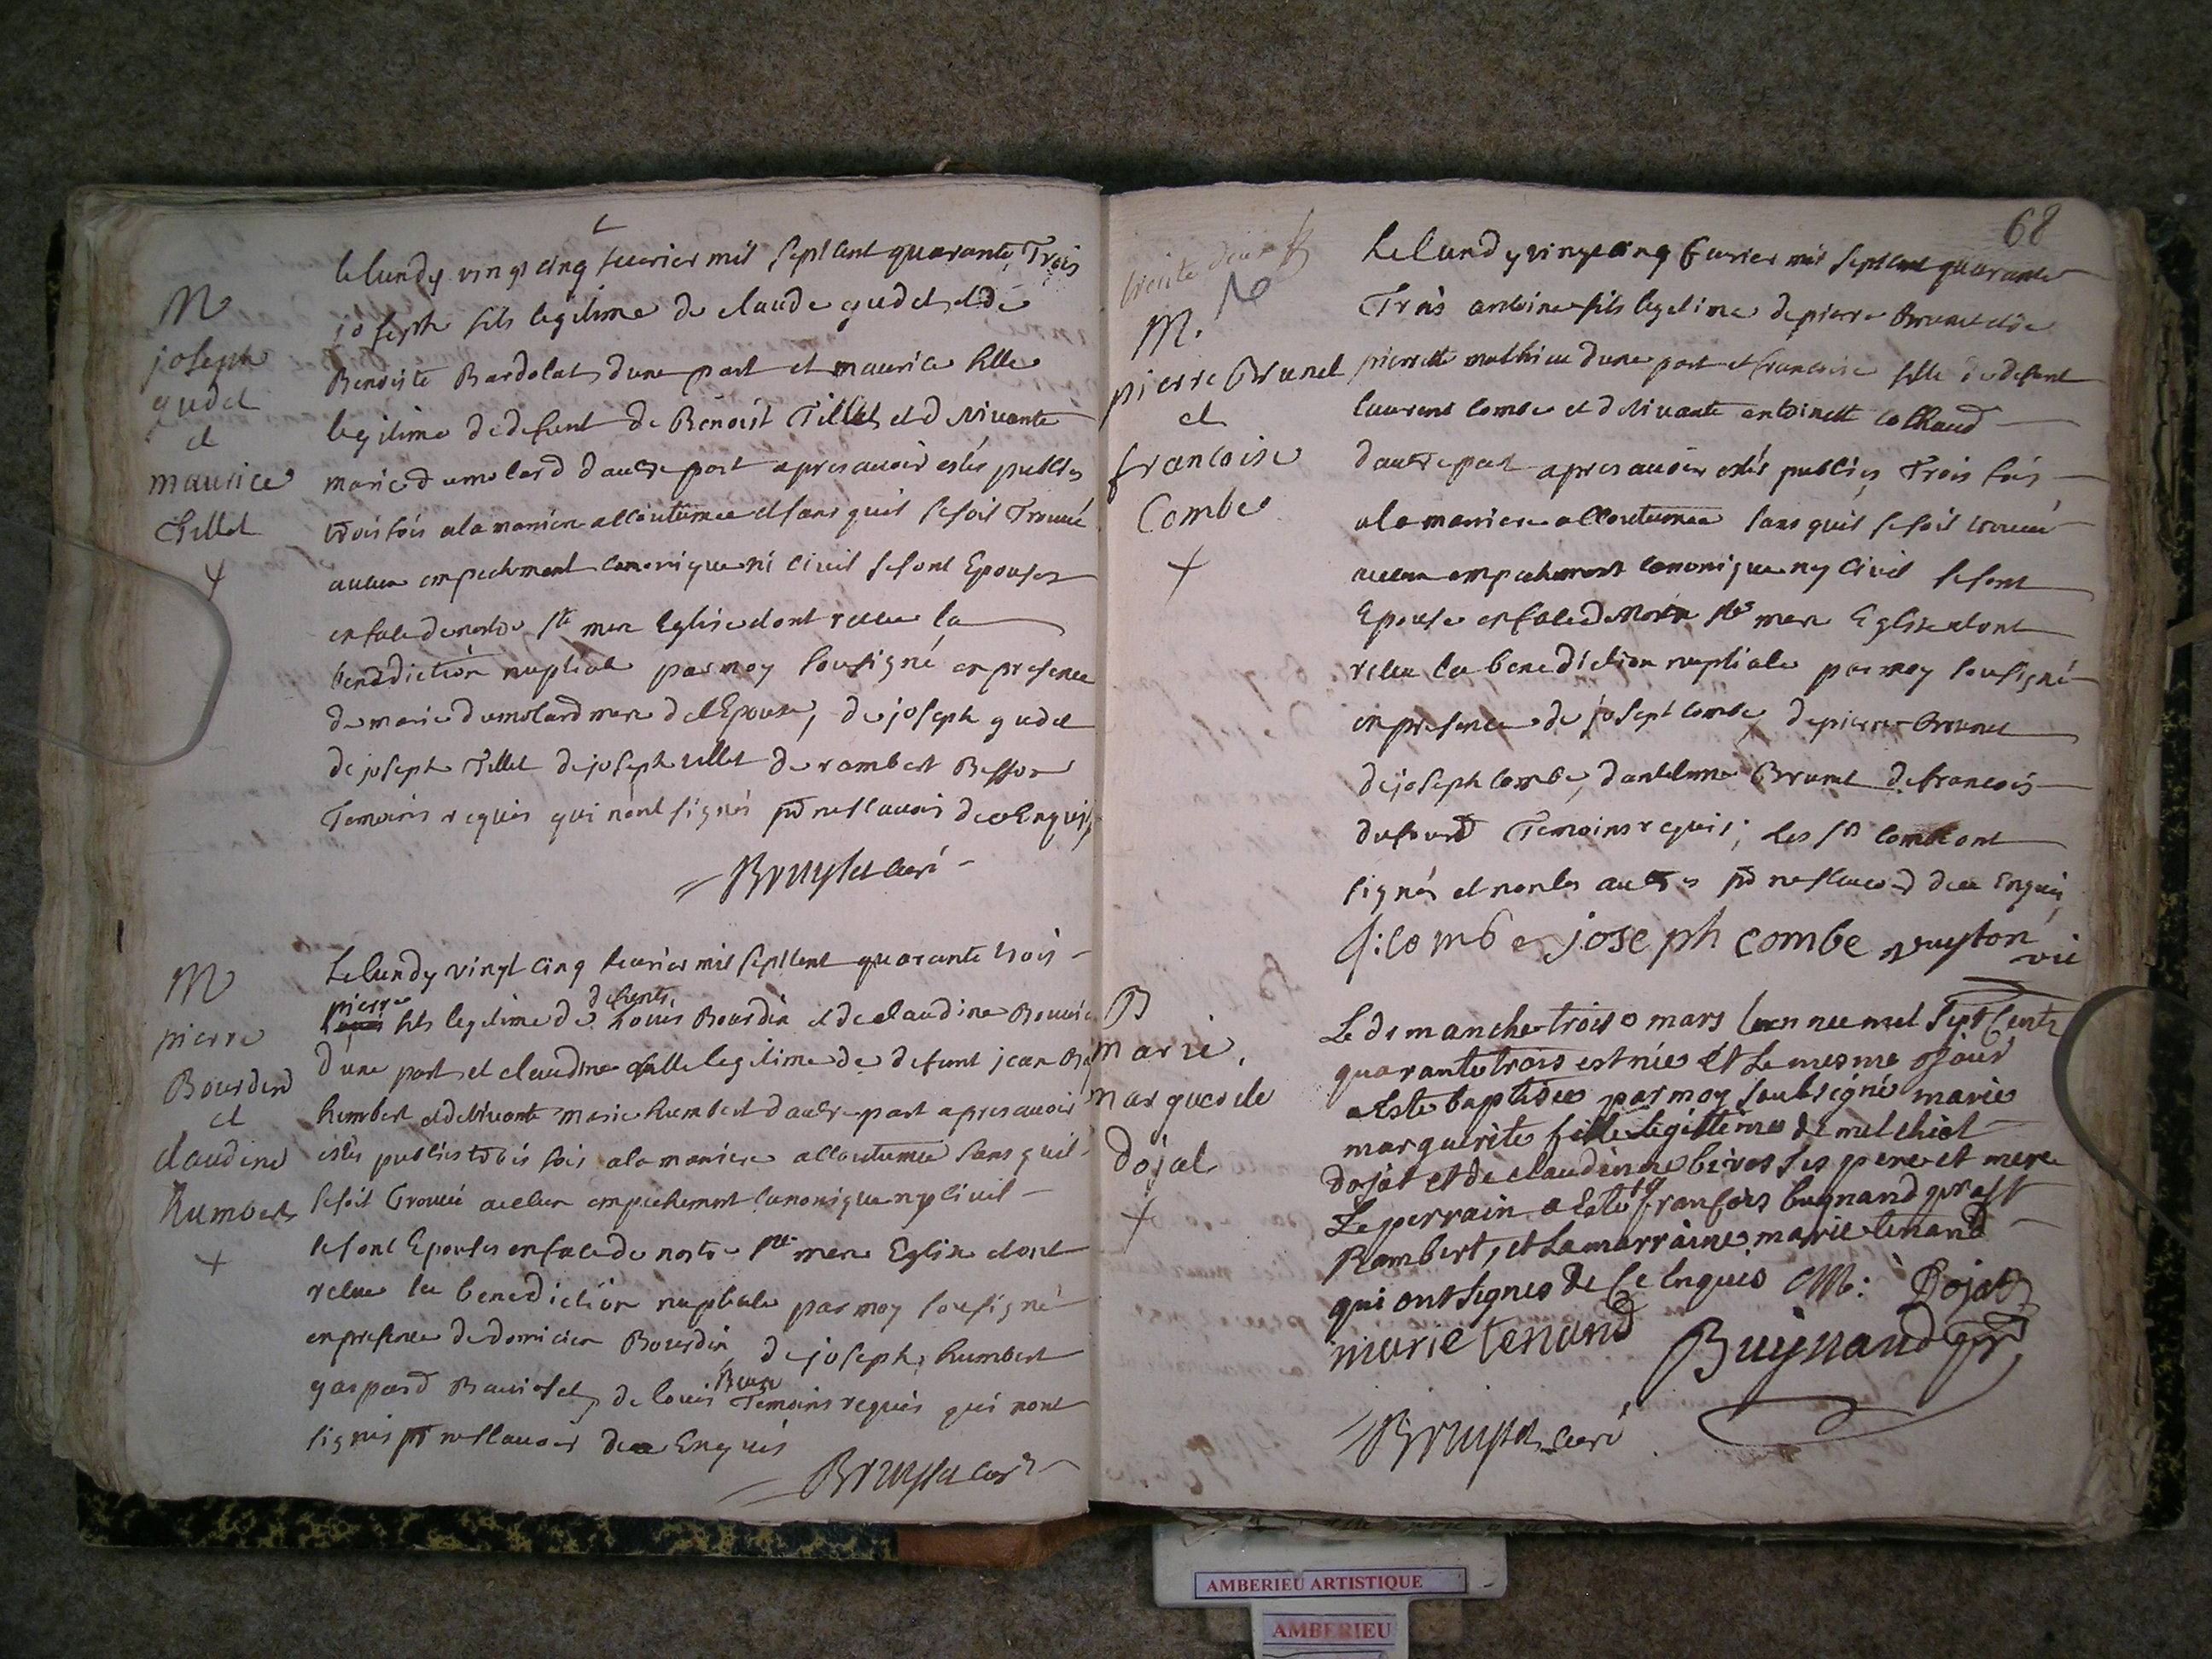 M
joseph
gudet
et
maurice
Tillet
+
le lundy vingt cinq feurier mil sept cent quarante Trois
joseph fils legitime de claude gudet et de
Benoiste Bardolat dune part et maurice fille
legitime de defunt de Benoist Tillet et de vivante
marie dumolard dautre part apres auoir estés publiés
trois fois a la maniere accoutumée et sans quil se soit Trouué
aucun empechement canonique ni ciuil se sont Epousez
en face de nostre ste mere Eglise dont receu la
benediction nuptiale par moy sousigné en presence
de marie dumolard mere de lEpouse, de joseph gudet
de joseph Tillet de joseph de rambert Besson
Temoins requis qui nont signés pr ne scauoir de ce Enquis
Bruyset curé
M
pierre
Bourdin
et
claudine
humbert
+
Le lundy vingt cinq feurier mil sept cent quarante trois
pierre fils legitime de defunts Louis Bourdin et de claudine
dune part et claudine fille legitime de defunt jean
humbert et de viuante marie humbert dautre part apres auoir
estés publiés trois fois a la maniere accoutumée sans quil
se soit trouué aucun empechement canonique ny ciuil
se sont Epousés en face de nostre ste mere Eglise dont
receu la benediction nuptiale par moy sousigné
en presence de Bourdin, de joseph humbert
gaspard de louis Temoins requis qui nont
signés pr ne scauoir de ce Enquis
Bruyset curé
68
trente deux
M.
pierre Brunet
et
francoise
Combe
+
Le lundy vingt cinq feurier mil sept cent quarante
Trois antoine fils legitime de pierre Brunet et de
pierrette mathieu dune part et francoise fille de defunt
laurent combe et de viuante antoinette
dautre part apres auoir estés publiés Trois fois
a la maniere accoutumée sans quil se soit trouué
aucun empechement canonique ny ciuil se sont
Epousé en face de Nostre ste mere Eglise dont
receu la benediction nuptiale par moy sousigné
en presence de josept combe, de pierre Brunet
de joseph combe, dantelme Brunet de francois
dufourd Temoins requis; Les sr combe ont
signés et non les autres pr ne scauoir de ce Enquis
combe joseph combe
B
marie
marguerite
Dojat
+
Le dimanche trois mars lannee mil sept cents
quarante trois est née et le mesme jour
a esté baptisée par moy soubsigné marie
marguerite fille legittime de melchiol
dojat et de claudine ses pere et mere
Le perrain a esté sr francois bugnand
Rambert, et la marraine marie tenand
qui ont signés de ce enquis M: Dojat
marie tenand Buynand
Bruyset curé
AMBERIEU ARTISTIQUE
AMBERIEU